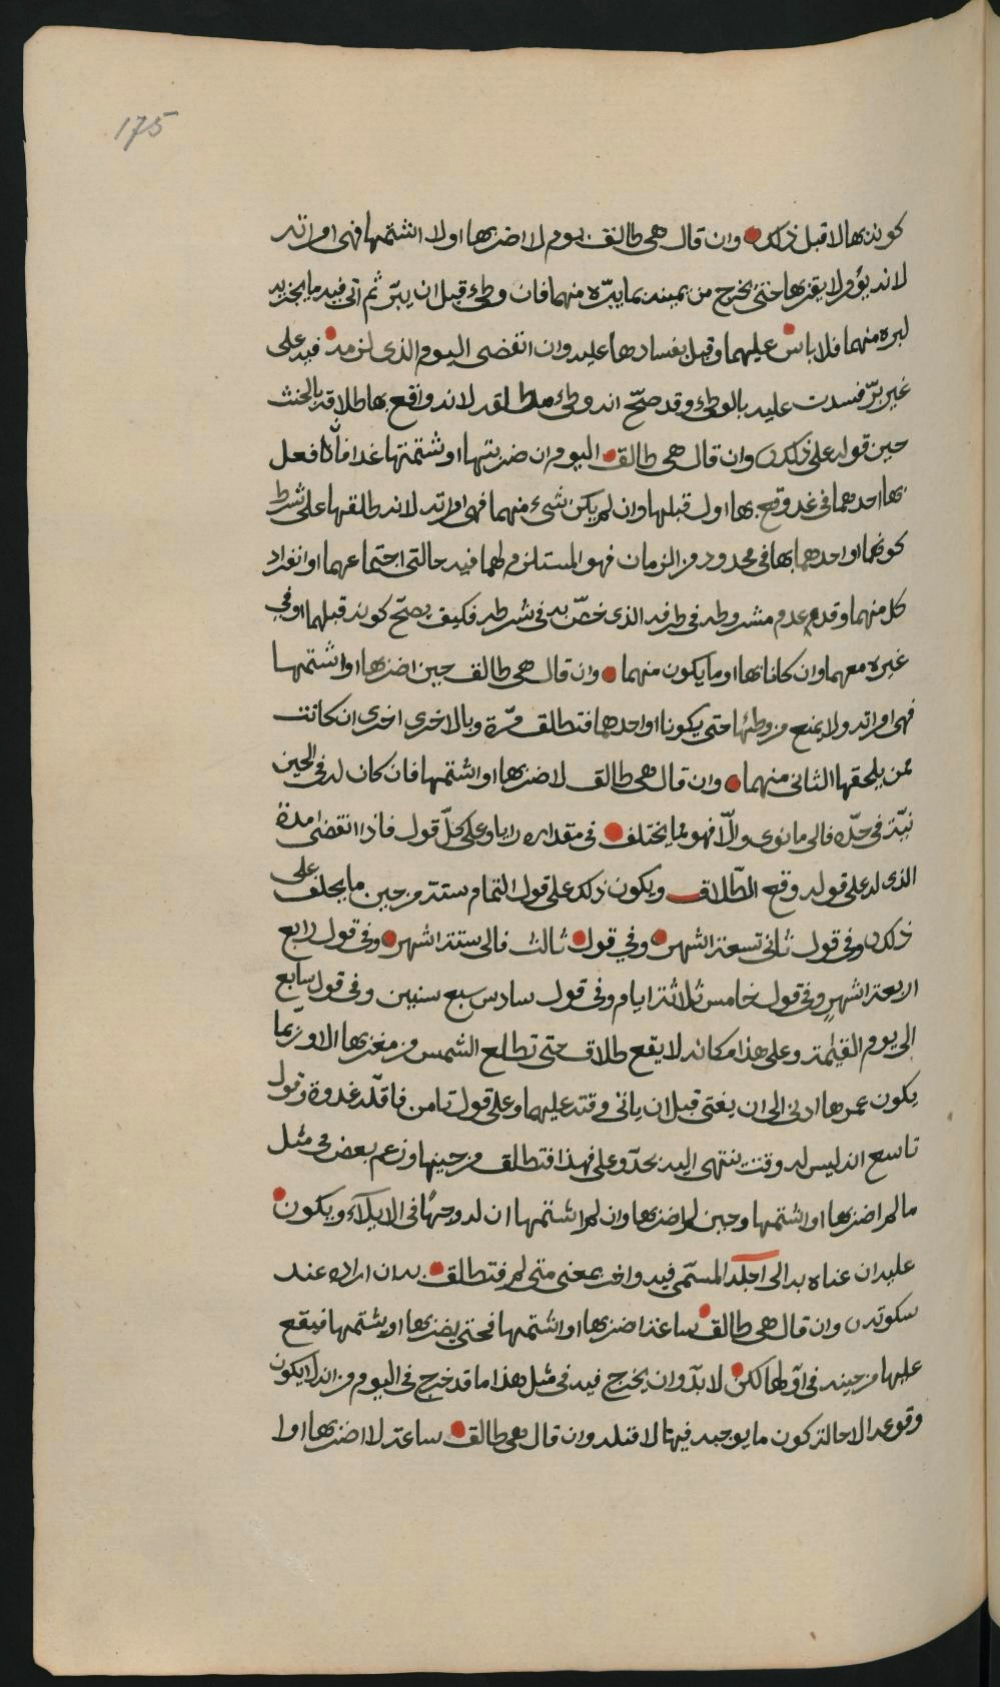 175
كونه بها لا قبل ذلك وان قال هي طالق يوم لا اضربها او لا اشتمها فهي امراته
لانه يؤمر لا يقربها حتى يخرج من يمينه بما يبره منهما فان وطئ قبل ان يبر ثم اتى فيه ما يجزيه
لبره منهما فلا باس عليهما وقيل بفسادها عليه وان انقضى اليوم الذي لزمه فيه على
غير بر فسدت عليه بالوطئ وقد صح انه وطئ مطلقه لانه واقع بها طلاقه بالحنث
حين قوله على ذلك وان قال هي طالق اليوم ان ضربتها او شتمتها غدا فان فعل
بها احدهما في غد وقع بها اول قبلها وان لم يكن شيء منهما فهي امراته لانه طلقها على شرط
كونهما او احدهما بها في محدود من الزمان فهو المستلزم لهما فيه حالتي اجتماعهما او انفراد
كل منهما وقد عدم مشروطه في ظرفه الذي خص به في شرطه فكيف يصح كونه قبلهما او في
غيره معهما وان كانا بها او ما يكون منهما وان قال هي طالق حين اضربها او اشتمها
فهي امراته ولا يمنع من وطئها حتى يكونا او احدهما فتطلق مرة وبالاخرى اخرى ان كانت
ممن يلحقها الثاني منهما وان قال هي طالق لاضربها او اشتمها فان كان له في الحين
نية في حده فالى ما نوى والا فهو مما يختلف في مقداره رايا وعلى كل قول فاذا انقضى امدة
الذي له على قوله وقع الطلاق ويكون ذلك على قول التمام ستة من حين ما يحلف على
ذلك وفي قول ثاني تسعة اشهر وفي قول ثالث فالى ستة اشهر وفي قول رابع
اربعة اشهر وفي قول خامس ثلاثة ايام وفي قول سادس سبع سنين وفي قول سابع
الى يوم القيمة وعلى هذا مكانه لا يقع طلاق حتى تطلع الشمس من مغربها الا وربما
يكون عمرها ادنى الى ان يفنى قبل ان ياتي وقته عليهما وعلى قول ثامن فاقله غدوة وقول
تاسع انه ليس له وقت ينتهي اليه بحد وعلى هذا فتطلق من حينها وزعم بعض في مثل
ما لم اضربها او اشتمها وحين لم اضربها وان لم اشتمها ان له وجها في الايلاء ويكون
عليه ان عناه به الى اجله المسمى فيه واخر بمعنى متى لم فتطلق به ان اراده عند
سكوته وان قال هي طالق ساعة اضربها او اشتمها فحتى يضربها او يشتمها فيقع
عليها من حينه في اولها لكن لا بد وان يخرج فيه في مثل هذا ما قد خرج في اليوم من انه لا يكون
وقوعه الا حالة كون ما يوجبه فيها لا قبله وان قال هي طالق ساعة لا اضربها او لا